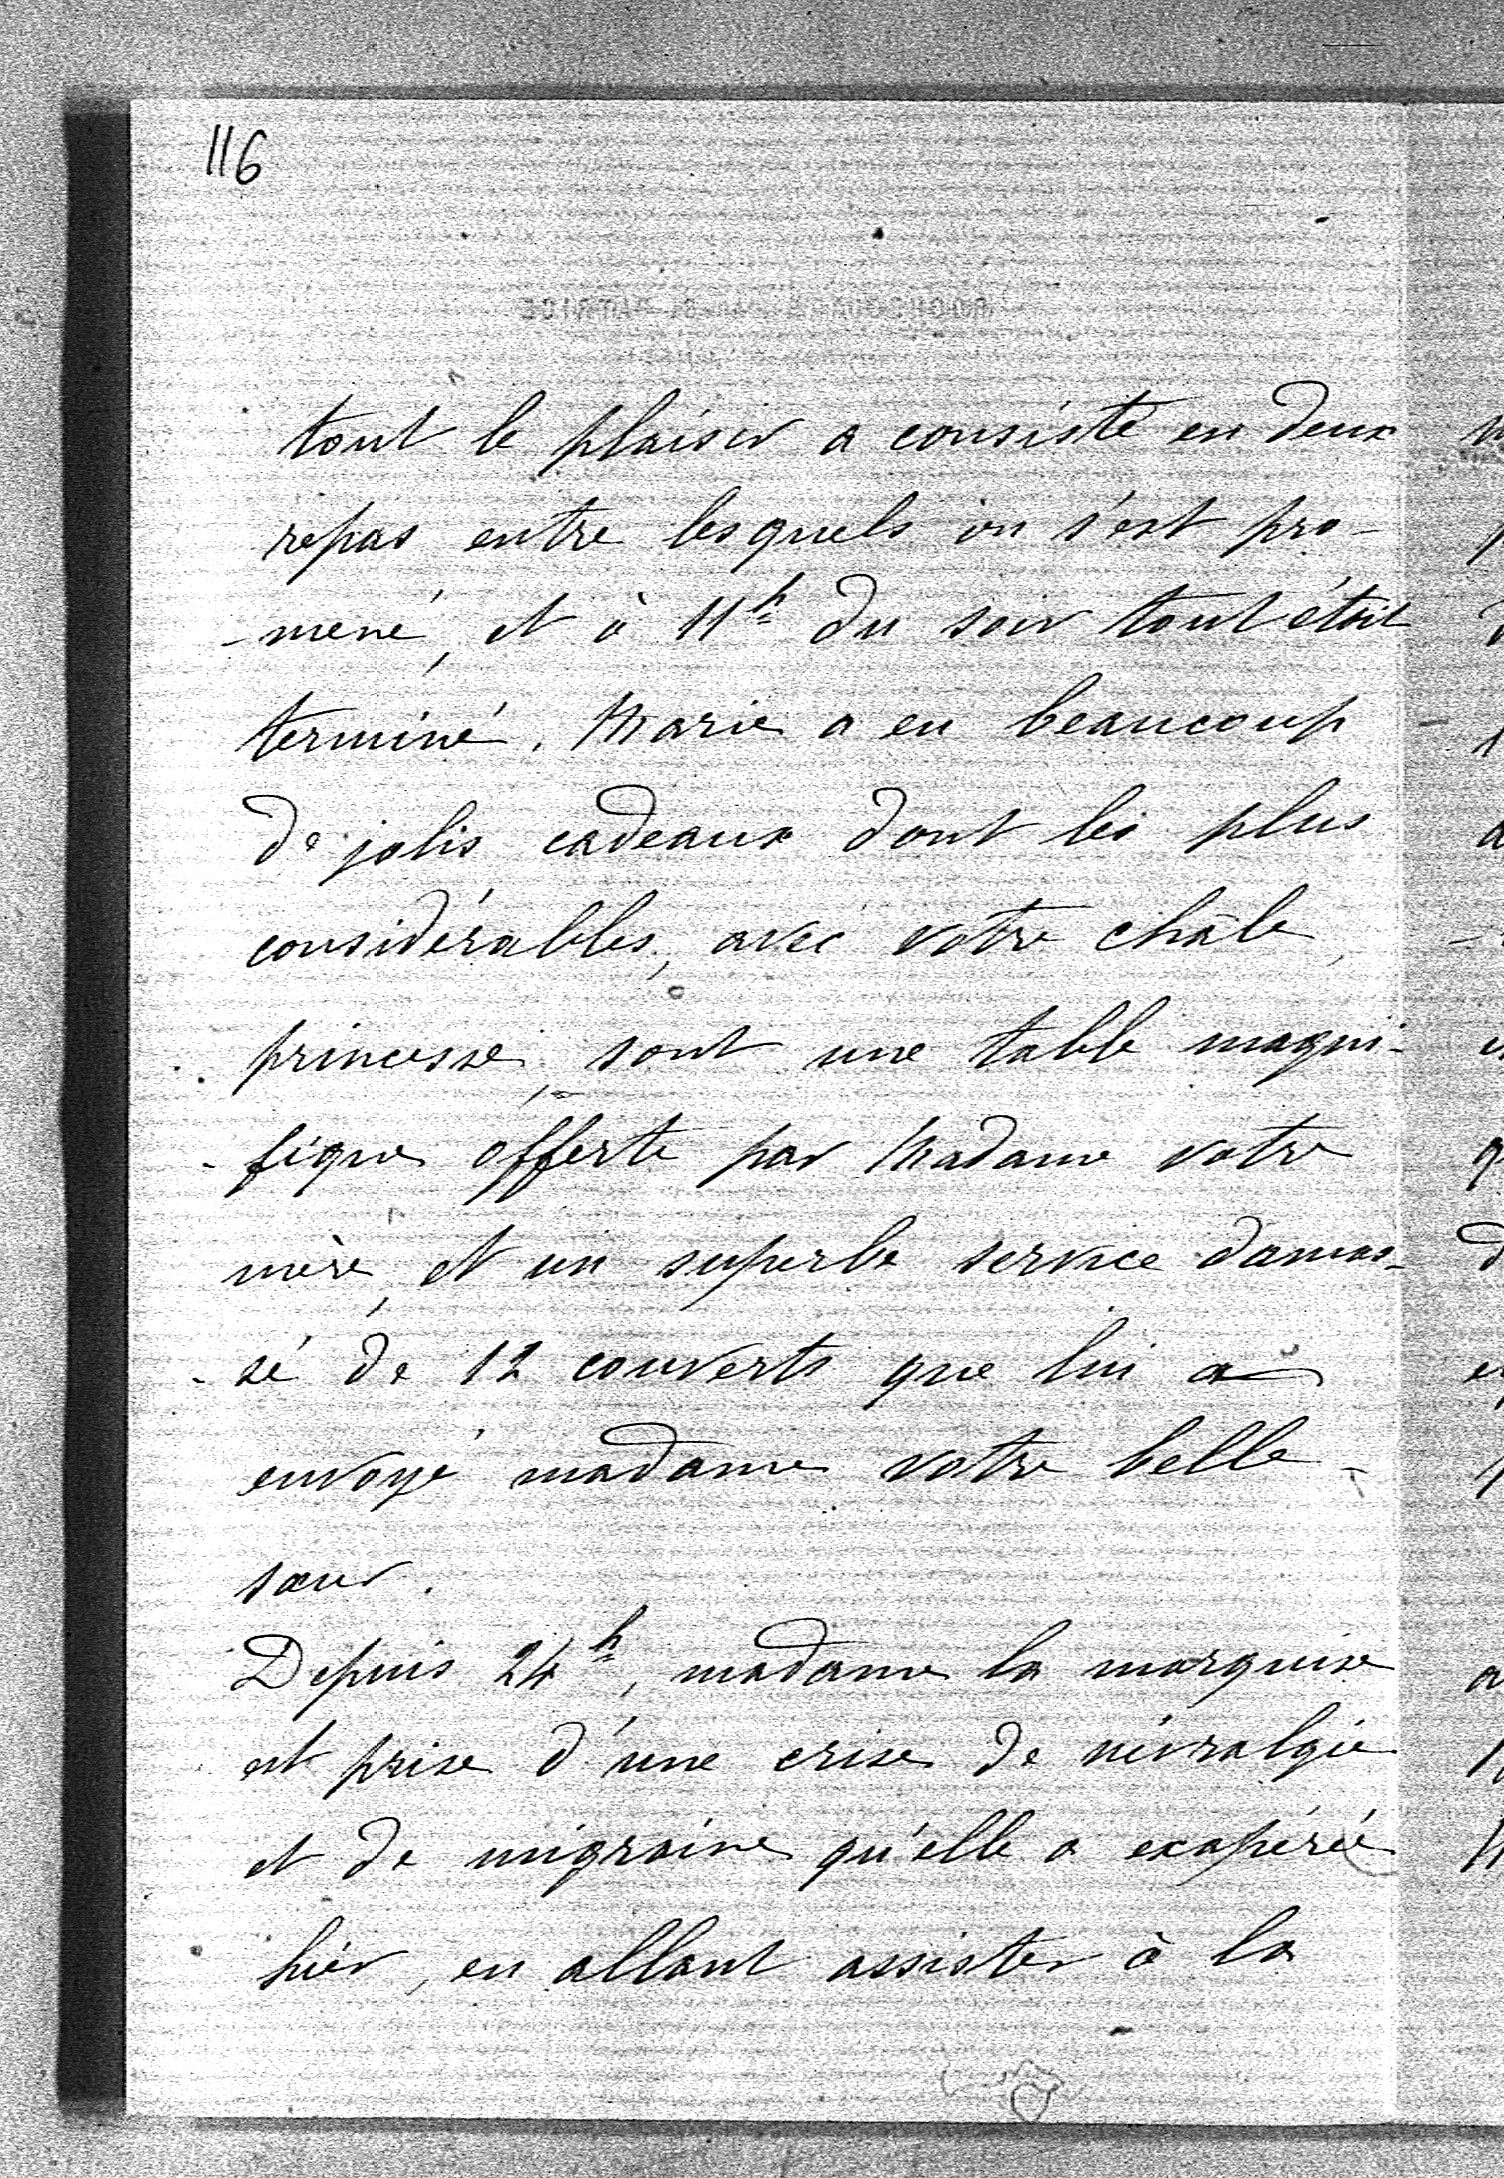 116
tout le plaisir a consisté en deux
repas entre lesquels on s'est pro-
-mené, et à 11h du soir tout était
terminé. Marie a eu beaucoup
de jolis cadeaux dont les plus
considérables, avec votre châle,
princesse, sont une table magni-
-fique offerte par Madame votre
mère, et un superbe service damas-
-sé de 12 couverts que lui a
envoyé madame votre belle-
sœur.
Depuis 24h, madame la marquise
est prise d'une crise de névralgie
et de migraine qu'elle a exaspérée
hier, en allant assister à la